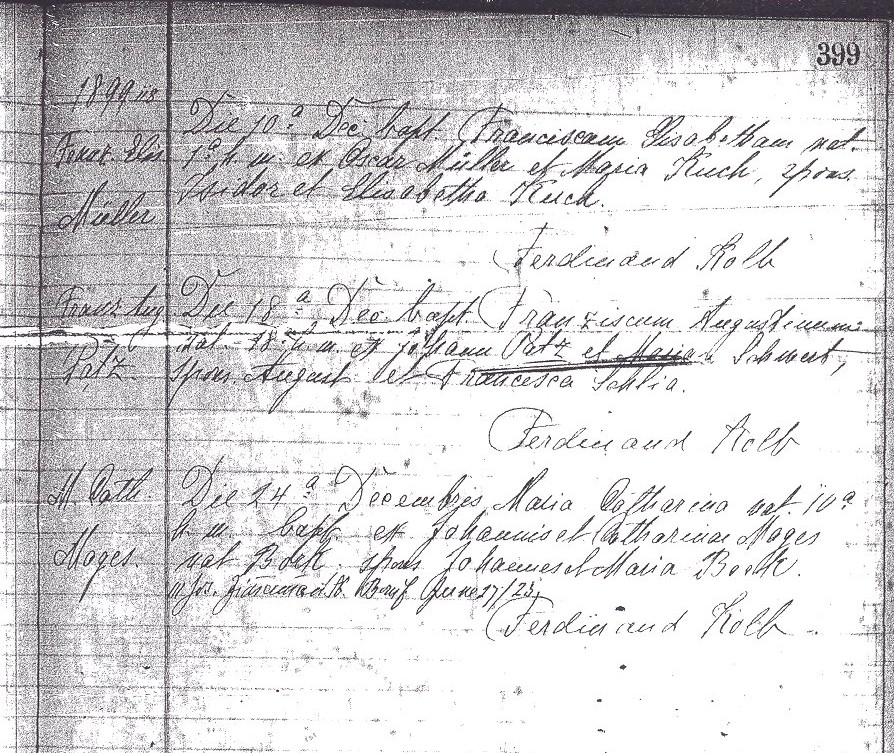 399
1899
Franz. Elis
Müller
Die 10a Dec. bapt. Franciscam Elisabetham nat.
1a h. m. ex Oscar Müller et Maria Kuch, spons.
Isidor et Elisabetha Kuch.
Ferdinand Kolb
Franz Aug
Patz
Die 18a Dec. bapt Franziscum Augustinum
nat 18. h. m. ex Johann Patz et Maria Schwert,
spons. August et Francesca Schlia.
Ferdinand Kolb
M. Cath.
Mages.
Die 24a Decembris Maria Catharina nat. 10a
h. m. bapt. ex Johannis et Catharina Mages
nat Boek spons Johannes et Maria Boek.
m Jos. June 27/23
Ferdinand Kolb.